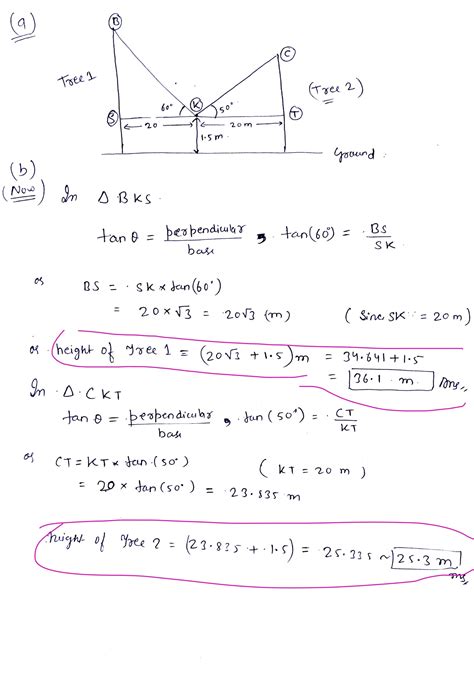 (a)
B
C
Tree 1
(Tree 2)
60°
K
50°
S
20
20m
T
1.5m
Ground
(b)
(Now) In Δ BKS.
tanθ = perpendicular/base , tan(60°) = BS/SK
or BS = SK × tan(60°)
= 20 × √3 = 20√3 (m) (Sine SK = 20m)
or height of Tree 1 = (20√3 + 1.5)m = 34.641 + 1.5
= 36.1 m. Ans.
In Δ CKT
tanθ = perpendicular/base , tan(50°) = CT/KT
or CT = KT × tan(50°) (KT = 20 m)
= 20 × tan(50°) = 23.835 m
height of Tree 2 = (23.835 + 1.5) = 25.335 ~ 25.3 m
Ans,